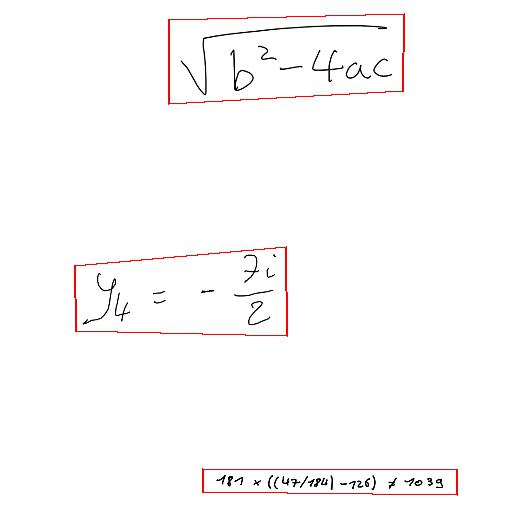 √(b² - 4ac)
y₄ = - 7i/2
181 × ((47/184) - 126) ≠ 1039